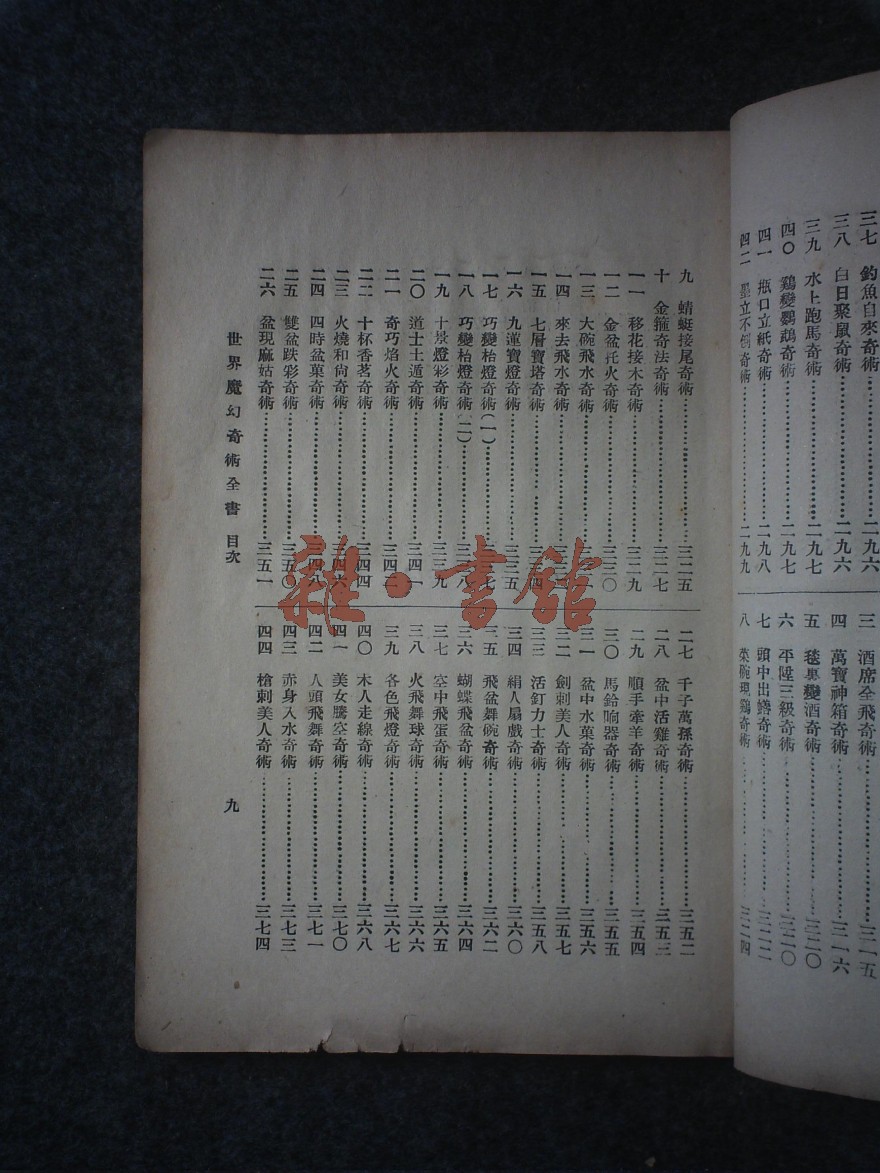 三七 釣魚自來奇術⋯⋯二九六
三八 白日聚鼠奇術⋯⋯二九六
三九 水上跑馬奇術⋯⋯二九七
四〇 鷄變鸚鵡奇術⋯⋯二九七
四一 瓶口立紙奇術⋯⋯二九八
四二 墨立不倒奇術⋯⋯二九九
三 酒席全飛奇術⋯⋯三一五
四 萬寶神箱奇術⋯⋯三一六
五 毯裏變酒奇術⋯⋯三二〇
六 平陞三級奇術⋯⋯三二〇
七 頭中出鱔奇術⋯⋯三二二
八 菜碗現鷄奇術⋯⋯三二四
九 蜻蜓接尾奇術⋯⋯三二五
十 金箍奇法奇術⋯⋯三二七
一一 移花接木奇術⋯⋯三二九
一二 金盆托火奇術⋯⋯三三〇
一三 大碗飛水奇術⋯⋯
一四 來去飛水奇術⋯⋯
一五 七層寶塔奇術⋯⋯
一六 九蓮寶燈奇術⋯⋯三三五
一七 巧變枱燈奇術(一)⋯⋯
一八 巧變枱燈奇術(二)⋯⋯三三八
一九 十景燈彩奇術⋯⋯三三九
二〇 道士土遁奇術⋯⋯三四一
二一 奇巧焰火奇術⋯⋯
二二 十杯香茗奇術⋯⋯三四四
二三 火燒和尙奇術⋯⋯三四六
二四 四時盆菓奇術⋯⋯三四八
二五 雙盆跌彩奇術⋯⋯三五〇
二六 盆現麻姑奇術⋯⋯三五一
二七 千子萬孫奇術⋯⋯三五二
二八 盆中活雞奇術⋯⋯三五三
二九 順手牽羊奇術⋯⋯三五四
三〇 馬鈴响器奇術⋯⋯三五五
三一 盆中水菓奇術⋯⋯三五六
三二 劍刺美人奇術⋯⋯三五七
三三 活釘力士奇術⋯⋯三五八
三四 絹人扇戲奇術⋯⋯三六〇
三五 飛盆舞碗奇術⋯⋯三六二
三六 蝴蝶飛盆奇術⋯⋯三六四
三七 空中飛蛋奇術⋯⋯三六五
三八 火飛舞球奇術⋯⋯三六六
三九 各色飛燈奇術⋯⋯三六七
四〇 木人走線奇術⋯⋯三六八
四一 美女騰空奇術⋯⋯三七〇
四二 人頭飛舞奇術⋯⋯三七一
四三 赤身入水奇術⋯⋯三七三
四四 槍刺美人奇術⋯⋯三七四
世界魔幻奇術全書 目次
九
雜·書館